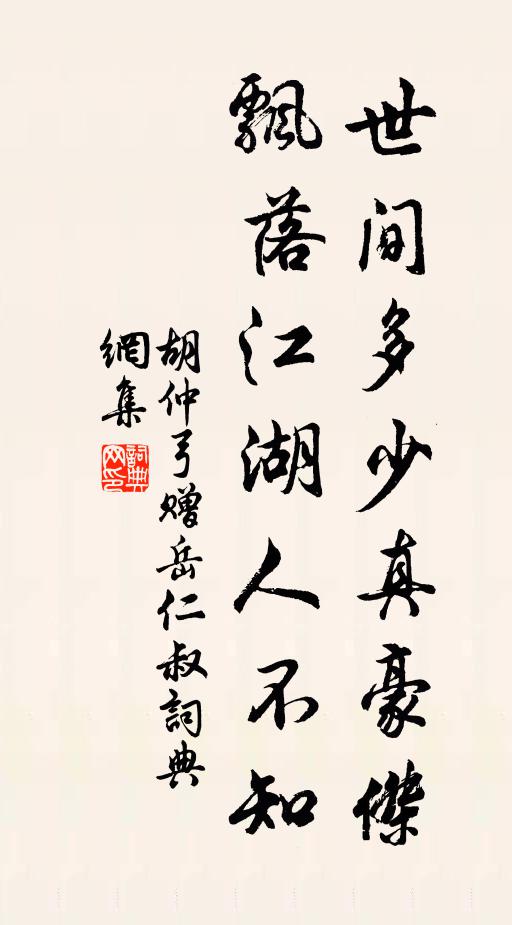 世间多少真豪傑
飄落江湖人不知
胡仲弓赠岳仁叔詞典
網集
詞典网印